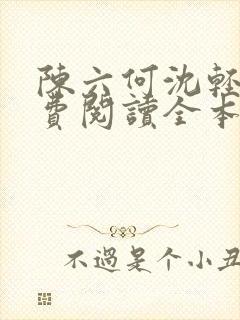 陳六何沈輕
費閱讀全本
不過是个小丑